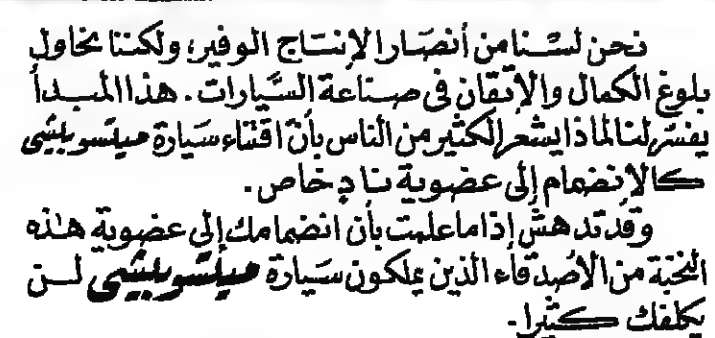 نحن لسنا من أنصار الإنتاج الوفير، ولكننا نحاول
بلوغ الكمال والإتقان في صناعة السيارات. هذا المبدأ
يفسّر لنا لماذا يشعر الكثير من الناس بأنّ اقتناء سيارة ميتسوبيشي
كالإنضمام إلى عضوية نادٍ خاص.
وقد تدهش إذا ما علمت بأن انضمامك إلى عضوية هذه
النخبة من الأصدقاء الذين يملكون سيارة ميتسوبيشي لن
يكلفك كثيرا.